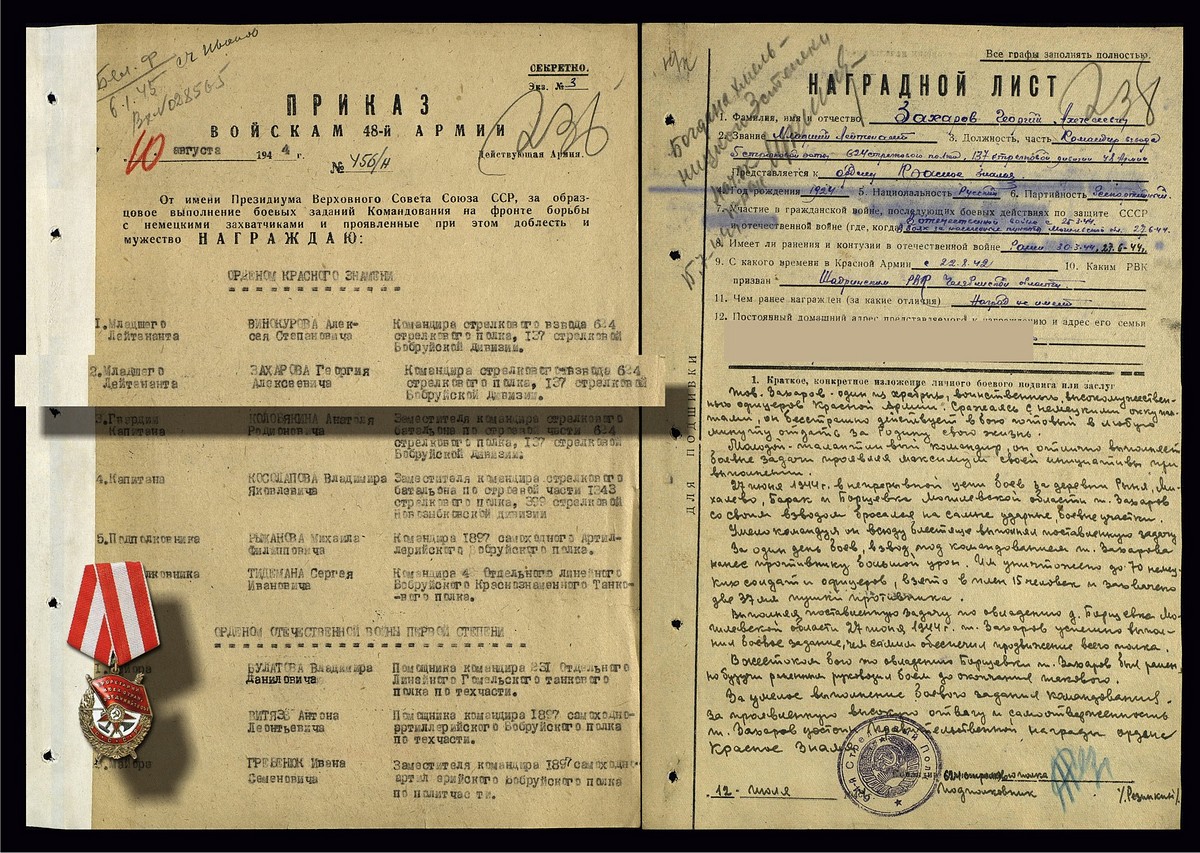 Бел. Ф
6.1.45
Вх№028565
СЕКРЕТНО.
Экз. № 3
ПРИКАЗ
ВОЙСКАМ 48-й АРМИИ
10 августа 1944 г.
№ 456/н
Действующая Армия.
238
От имени Президиума Верховного Совета Союза ССР, за образ-
цовое выполнение боевых заданий Командования на фронте борьбы
с немецкими захватчиками и проявленные при этом доблесть и
мужество НАГРАЖДАЮ:
ОРДЕНОМ КРАСНОГО ЗНАМЕНИ
1.Младшего ВИНОКУРОВА Алек- Командира стрелкового взвода 624
Лейтенанта сея Степановича стрелкового полка, 137 стрелковой
Бобруйской Дивизии.
2.Младшего ЗАХАРОВА Георгия Командира стрелкового взвода 624
Лейтенанта Алексеевича стрелкового полка, 137 стрелковой
Бобруйской Дивизии.
3.Гвардии КОЛОВЯКИНА Анатоля Заместителя командира стрелкового
Капитана Родионовича батальона по строевой части 624
стрелкового полка, 137 стрелковой
Бобруйской Дивизии.
4.Капитана КОСОЛАПОВА Владимира Заместителя командира стрелкового
Яковлевича батальона по строевой части 1343
стрелкового полка, 399 стрелковой
Новозыбковской дивизии
5.Подполковника РЫЖАНОВА Михаила Командира 1897 самоходного Артил-
Филипповича лерийского Бобруйского полка.
ковника ТИДЕМАНА Сергея Командира 4 Отдельного линейного
Ивановича Бобруйского Краснознаменного Танко-
-вого полка.
ОРДЕНОМ ОТЕЧЕСТВЕННОЙ ВОЙНЫ ПЕРВОЙ СТЕПЕНИ
БУЛАТОВА Владимира Помощника командира 231 Отдельного
Даниловича Линейного Гомельского танкового
полка по техчасти.
ВИТЯЗЬ Антона Помощника командира 1897 самоходно-
Леонтьевича артиллерийского Бобруйского полка
по техчасти.
Майора ГРЕБЕНЮК Ивана Заместителя командира 1897 самоходно-
Семеновича артиллерийского Бобруйского полка
по политчасти.
Все графы заполнять полностью.
НАГРАДНОЙ ЛИСТ
238
1. Фамилия, имя и отчество Захаров Георгий Алексеевич
2. Звание Младший Лейтенант 3. Должность, часть Командир взвода
624 стрелкового полка, 137 стрелковой дивизии 48 Армии
Представляется к ордену Красное знамя
4. Год рождения 1924 5. Национальность Русский 6. Партийность Беспартийный
7. Участие в гражданской войне, последующих боевых действиях по защите СССР
и отечественной войне (где, когда) В отечественной войне с 25.3.44
8. Имеет ли ранения и контузии в отечественной войне Ранен 30.3.44, 27.6.44.
9. С какого времени в Красной Армии с 22.8.42 10. Каким РВК
призван Шадринским РВК Челябинской области
11. Чем ранее награжден (за какие отличия) Наград не имеет
12. Постоянный домашний адрес представляемого к награждению и адрес его семьи
ДЛЯ ПОДШИВКИ
1. Краткое, конкретное изложение личного боевого подвига или заслуг
Тов. Захаров - один из храбрых, воинственных, высокомужествен-
ных офицеров Красной Армии. Сражаясь с немецкими оккупан-
тами, он бесстрашно действует в бою готовый в любую
минуту отдать за Родину свою жизнь.
Молодой талантливый командир, он отлично выполняет
боевые задачи проявляя максимум своей инициативы при
выполнении.
27 июня 1944г. в непрерывной цепи боев за деревни Рыня, Ми-
халево, Барак и Борщевка Могилевской области т. Захаров
со своим взводом бросался на самые ударные, боевые участки.
Умело командуя он всюду блестяще выполнял поставленную задачу
За один день боев, взвод под командованием т. Захарова
нанес противнику большой урон. Им уничтожено до 70 немец-
ких солдат и офицеров, взято в плен 15 человек и захвачено
две 37 мм пушки противника.
Выполняя поставленную задачу по овладению д. Борщевка Мо-
гилевской области 27 июня 1944г. т. Захаров успешно выпол-
нил боевое задание, чем самым обеспечил продвижение всего полка.
В жестоком бою по овладению Борщевки т. Захаров был ранен,
но будучи раненым руководил боем до окончания такового.
За умелое выполнение боевого задания командования
за проявленную высокую отвагу и самоотверженность
т. Захаров достоин правительственной награды ордена
Красное Знамя
Командир 624 стрелкового полка
подполковник
12 июля